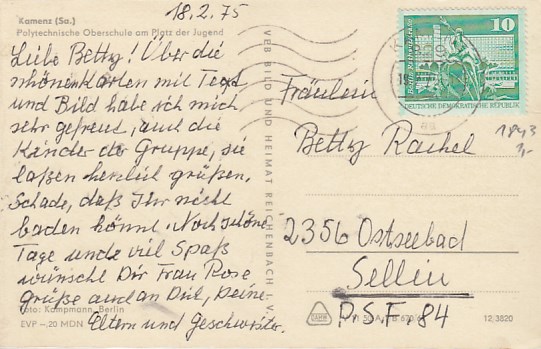 18.2.75
Kamenz (Sa.)
Polytechnische Oberschule am Platz der Jugend
Liebe Betty! Über die
schönen Karten mit Text
und Bild habe ich mich
sehr gefreut, auch die
Kinder der Gruppe, sie
laßen herzlich grüßen.
Schade, daß Ihr nicht
baden könnt. Noch schöne
Tage und viel Spaß
wünscht Dir Frau Rose
Grüße auch an Dich, Deine
Eltern und Geschwister.
Foto: Kampmann, Berlin
EVP -,20 MDN
VEB BILD UND HEIMAT REICHENBACH I. V.
10
DEUTSCHE DEMOKRATISCHE REPUBLIK
1843
Fräulein
Betty Rachel
2356 Ostseebad
Sellin
P.S.F. 84
12 3820